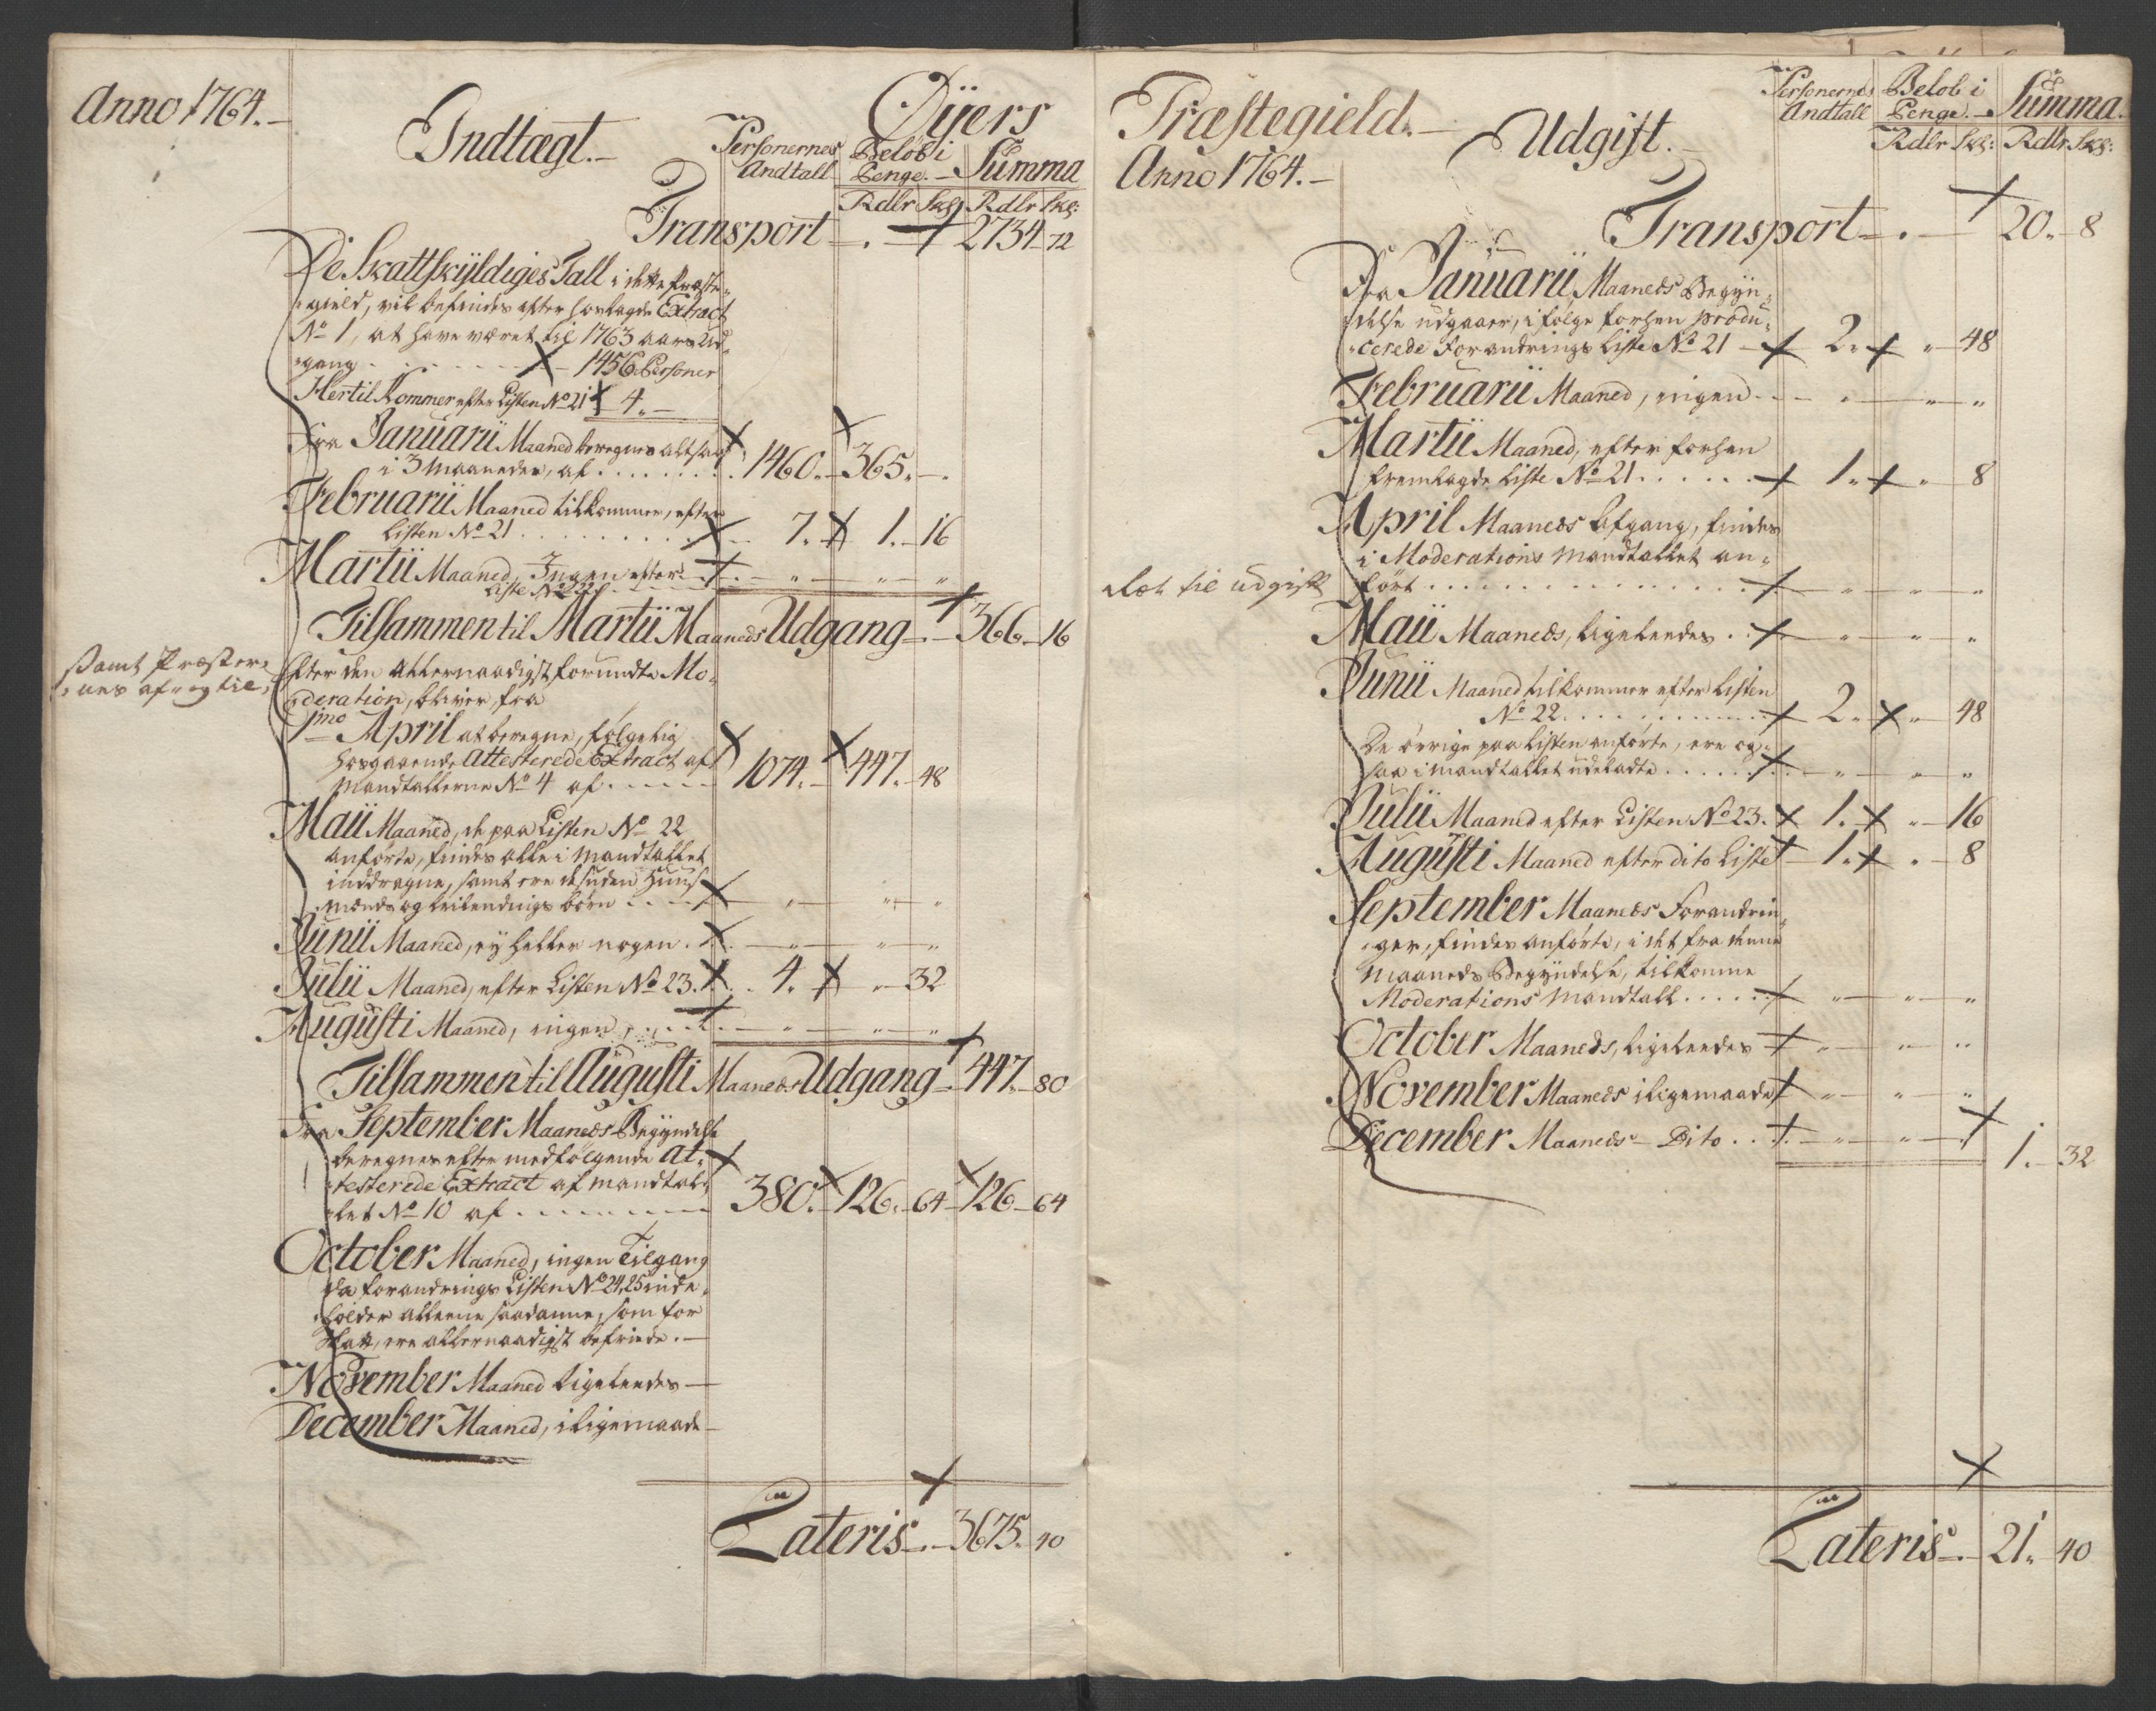 Anno 1764.
Indtægt.
Øÿers
Personernes Andtall
Beløb i Penge.
Summa
Rdlr Sk: Rdlr Sk:
Transport 2734 72
De Skattskÿldiges Tall i dette Præste-
gield, vil befindes efter hoslagde Extract
No 1, at have været til 1763 aars Ud-
gang 1456 Personer
Hertil Kommer efter Listen No 21 4.
Fra Januarii Maaned beregnes altsaa
i 3 Maaneder, af 1460. 365.
Februarii Maaned tilkommer, efter
Listen No 21 7. 1. 16
Martii Maaned, Ingen efter
Liste No 22
Tilsammen til Martii Maaneds Udgang 366 16
Samt Præster-
nes af- og til-
Efter den allernaadigst forundte Mo-
deration, bliver fra
1mo April at beregne, følgelig
hosgaaende Attesterede Extract af
Mandtallerne No 4 af 1074. 447. 48
Maii Maaned, de paa Listen No 22
anførte, findes alle i Mandtallet
inddragne, samt ere desuden Huus-
mænds og leilendings børn
Junii Maaned, eÿ heller nogen.
Julii Maaned, efter Listen No 23. 4. 32
Augusti Maaned, ingen
Tilsammen til Augusti Maaneds Udgang 447. 80
Fra September Maaneds Begÿndelse
beregnes efter medfølgende At-
testerede Extract af Mandtal-
let No 10 af 380. 126. 64 126 64
October Maaned, ingen Tilgang
da forandrings Listen No 24, 25 inde-
holder alleene saadanne, som for
Skatt, ere allernaadigst befriede.
November Maaned ligeleedes
December Maaned, i ligemaade
Lateris 3675. 40
Præstegield.
Anno 1764.
Udgift.
Personernes Andtall
Beløb i Penge.
Summa.
Rdlr Sk: Rdlr Sk:
Transport 20. 8
Fra Januarii Maaneds Begÿn-
delse udgaaer, i følge forhen produ-
cerede Forandrings Liste No 21 2. 48
Februarii Maaned, ingen
Martii Maaned, efter forhen
fremlagde Liste No 21 1. 8
April Maaneds Afgang, findes
i Moderations Mandtallet an-
ført
til udgift
Maii Maaneds, ligeleedes
Junii Maaned tilkommer efter Listen
No 22 2. 48
De øvrige paa Listen anførte, ere og-
saa i Mandtallet udeladte
Julii Maaned efter Listen No 23. 1. 16
Augusti Maaned efter dito Liste 1. 8
September Maaneds Forandrin-
ger, findes anførte, i det fra denne
Maaneds Begÿndelse, tilkomne
Moderations Mandtall
October Maaneds, ligeleedes
November Maaneds i ligemaade
December Maaneds Dito 1. 32
Lateris 21. 40